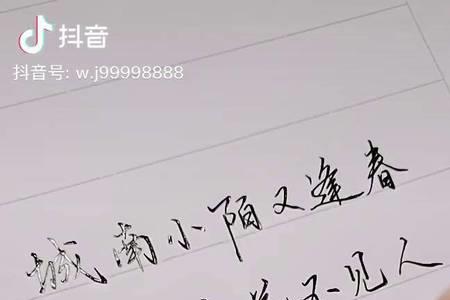 抖音
抖音号: w.j99998888
城南小陌又逢春
不见人